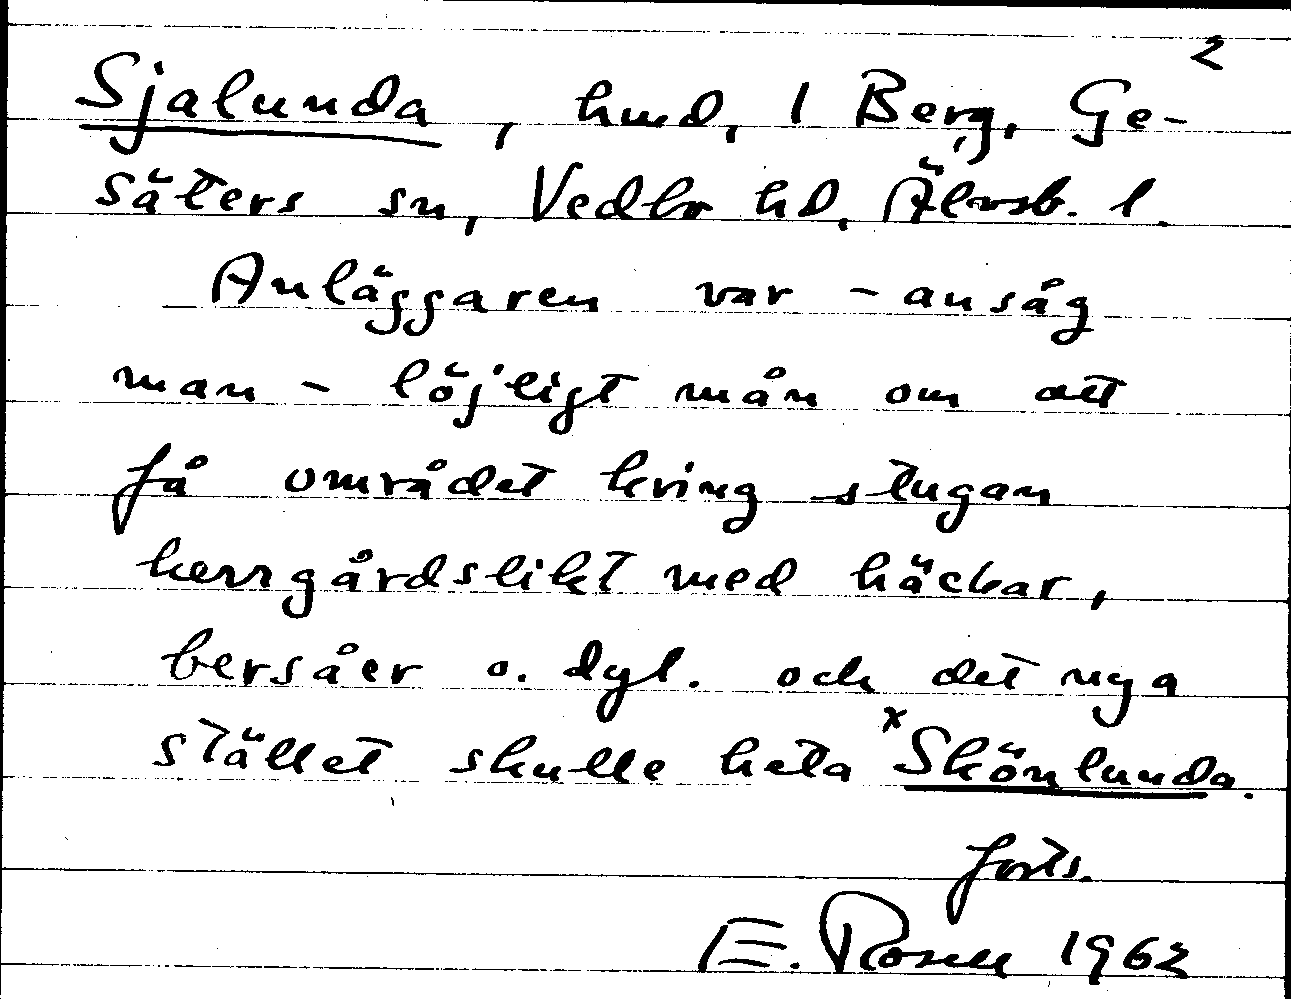 2
Sjalunda, hmd, 1 Berg, Ge-
säters sn, Vedbo hd, Älvsb. l.
Anläggaren var - ansåg
man - löjligt mån om att
få området kring stugan
herrgårdslikt med häckar,
bersåer o. dyl. och det nya
stället skulle heta ˣSkönlunda.
forts.
E. Rosell 1962